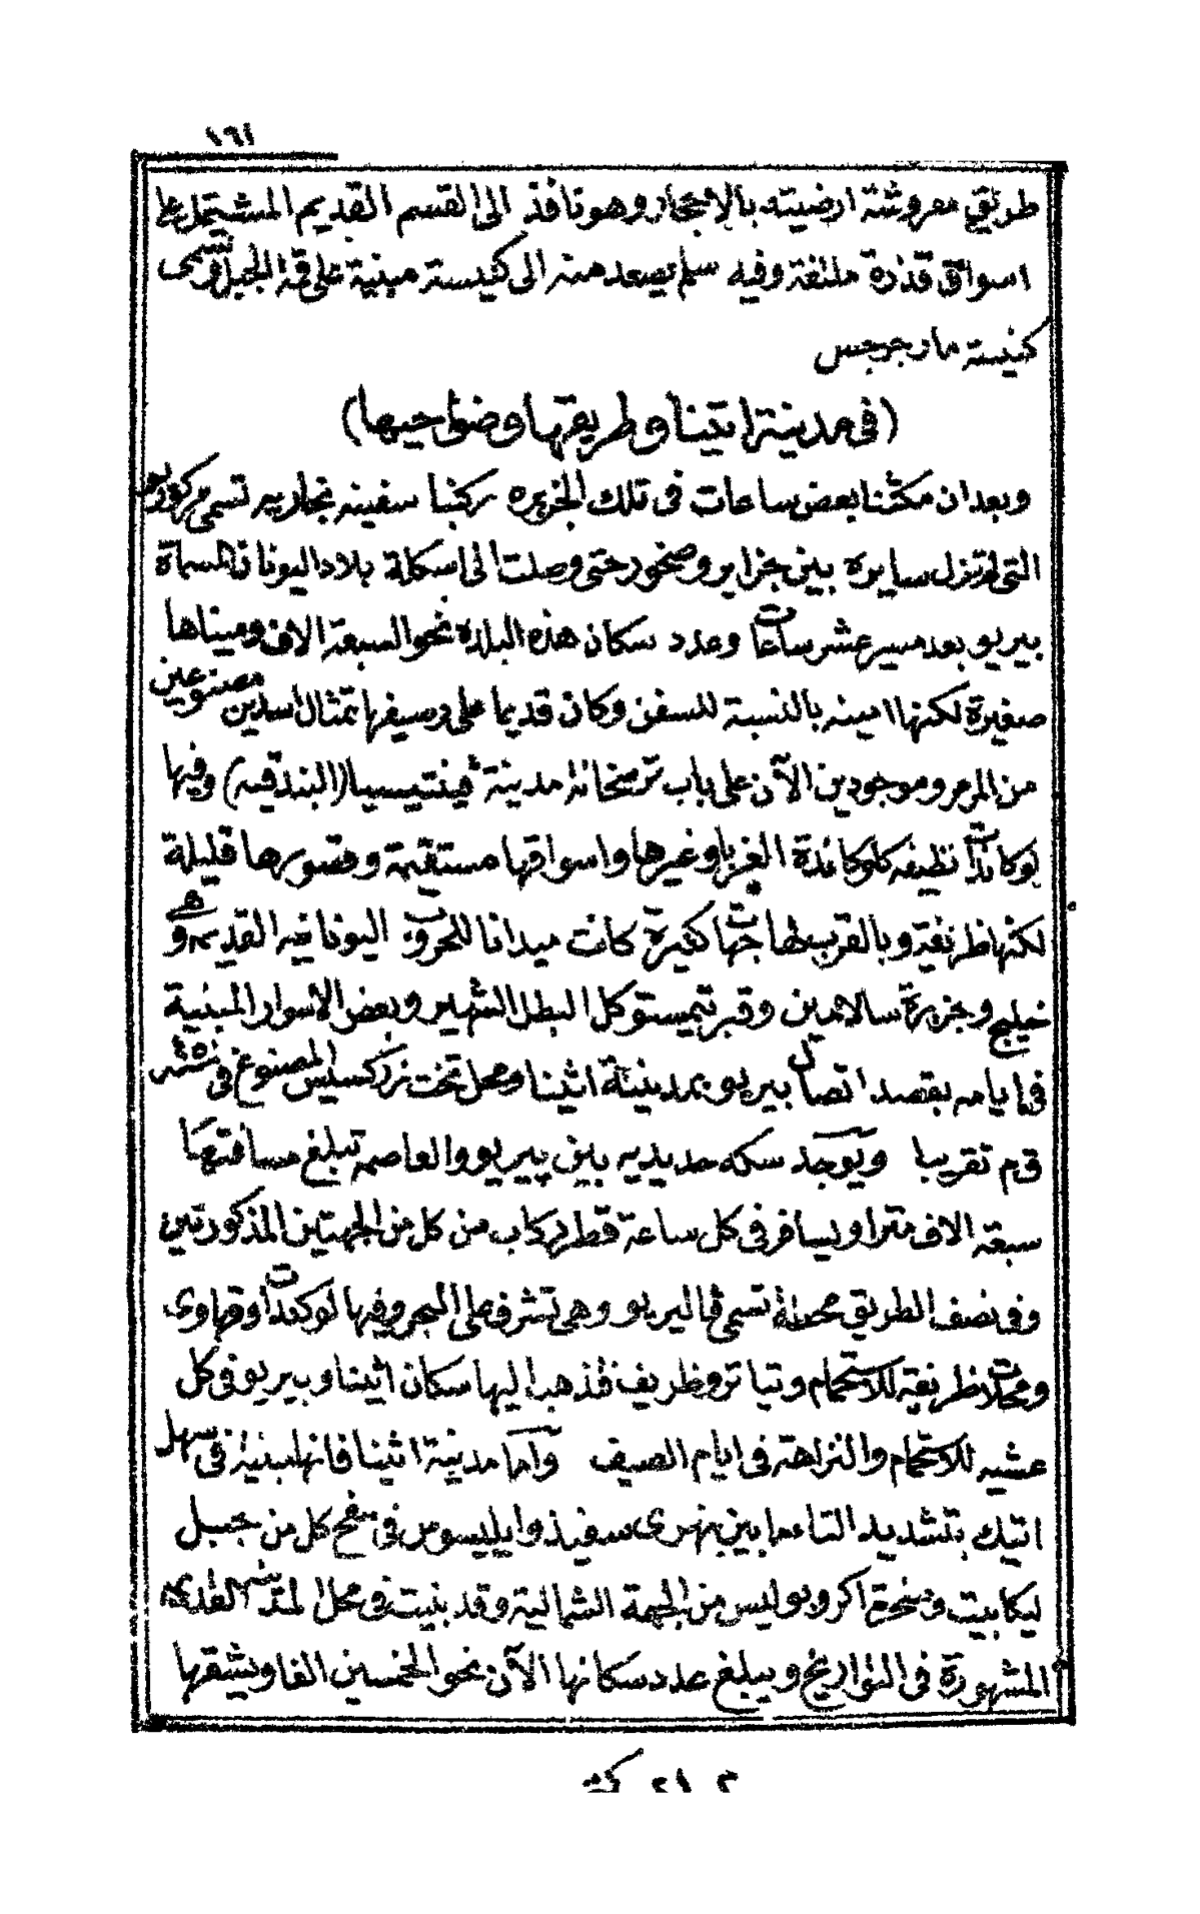 ١٦١
طريق مفروشة ارضيته بالاحجار وهو نافذ الى القسم القديم المشتمل على
اسواق قذرة ملتفة وفيه سلم يصعد منه الى كنيسة مبنية على قمة الجبل وتسمى
كنيسة مار جرجس
(فى مدينة اتينا وطريقها وضواحيها)
وبعد ان مكثنا بعض ساعات فى تلك الجزيره ركبنا سفينه نجاريه تسمى مركوريو
التى لم تزل سايره بين جزاير وصخور حتى وصلت الى اسكلة بلاد اليونان المسماة
بيريو بعد مسير عشر ساعات وعدد سكان هذه البلده نحو السبعة الاف وميناها
صغيرة لكنها امينه بالنسبة للسفن وكان قديما على رصيفها تمثال اسدين مصنوعين
من المرمر وموجودين الآن على باب ترسخانة مدينة فينتيسيا (البندقيه) وفيها
لوكاندات نظيفه كلوكاندة الغربا وغيرها واسواقها مستقيمة وقصورها قليلة
لكنها ظريفة وبالقرب لها جهات كثيرة كانت ميدانا للحروب اليونانيه القديمه وهى
خليج وجزيرة سالامين وقبر تيمستوكل البطل الشهير وبعض الاسوار المبنية
فى ايامه بقصد اتصال بيريو بمدينة اثينا ومحل تخت زركسيس المصنوع فى سنة
ق م تقريبا ويوجد سكه حديديه بين پيريو والعاصمه تبلغ مسافتها
سبعة الاف مترا ويسافر فى كل ساعة قطر ركاب من كل من الجهتين المذكورتين
وفى نصف الطريق محطة تسمى فاليريو وهى تشرف على البحر وفيها لوكندات وقهاوى
ومحلات ظريفة للاستحمام وتياترو ظريف فذهب اليها سكان اثينا وبيريو فى كل
عشيه للاستحمام والنزاهة فى ايام الصيف وأما مدينة اثينا فانها مبنية فى سهل
اتيك بتشديد التاء ما بين نهرى سفيذ وايليسوس فى سفح كل من جبل
ليكابيت وصخرة اكروبوليس من الجهة الشمالية وقد بنيت فى محل المدينة القديمه
المشهورة فى التواريخ ويبلغ عدد سكانها الآن نحو الخمسين الفا ويشقها